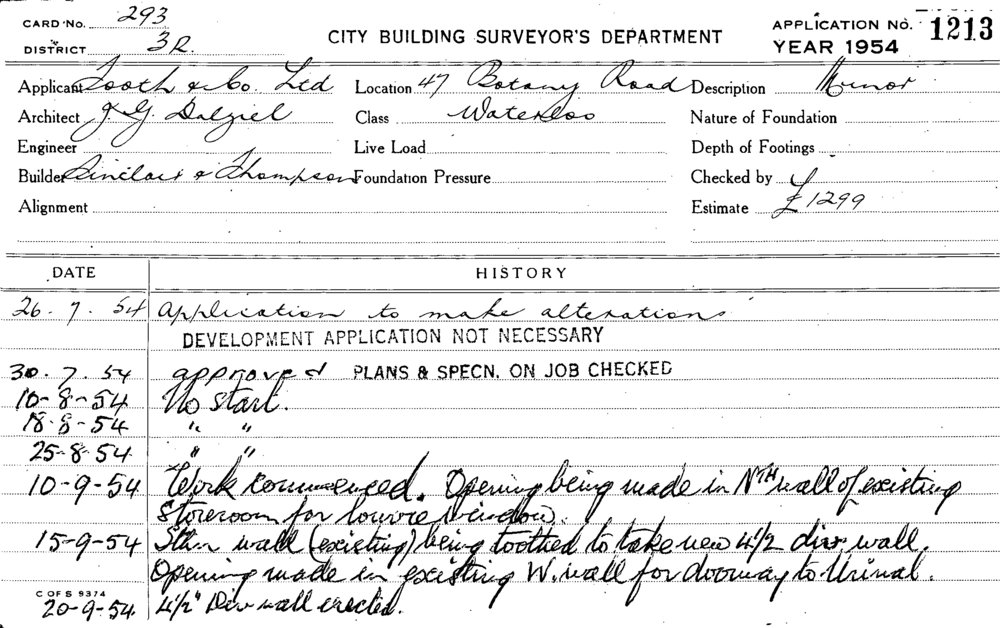 CARD No. 293
DISTRICT 3R.
CITY BUILDING SURVEYOR'S DEPARTMENT
APPLICATION No. 1213
YEAR 1954
Applicant Tooth & Co. Ltd Location 47 Botany Road Description Minor
Architect J. G. Dalziel Class Waterloo Nature of Foundation
Engineer Live Load Depth of Footings
Builder Sinclair & Thompson Foundation Pressure Checked by
Alignment Estimate £1299
DATE HISTORY
26. 7. 54 Application to make alterations
DEVELOPMENT APPLICATION NOT NECESSARY
30. 7. 54 approved PLANS & SPECN. ON JOB CHECKED
10-8-54 No start.
18-8-54 " "
25-8-54 " "
10-9-54 Work commenced. Opening being made in Nth wall of existing
storeroom for louvre window.
15-9-54 Sthn wall (existing) being toothed to take new 4½ div. wall.
Opening made in existing W. wall for doorway to Urinal.
C OF S 9374
20-9-54. 4½" Div wall erected.